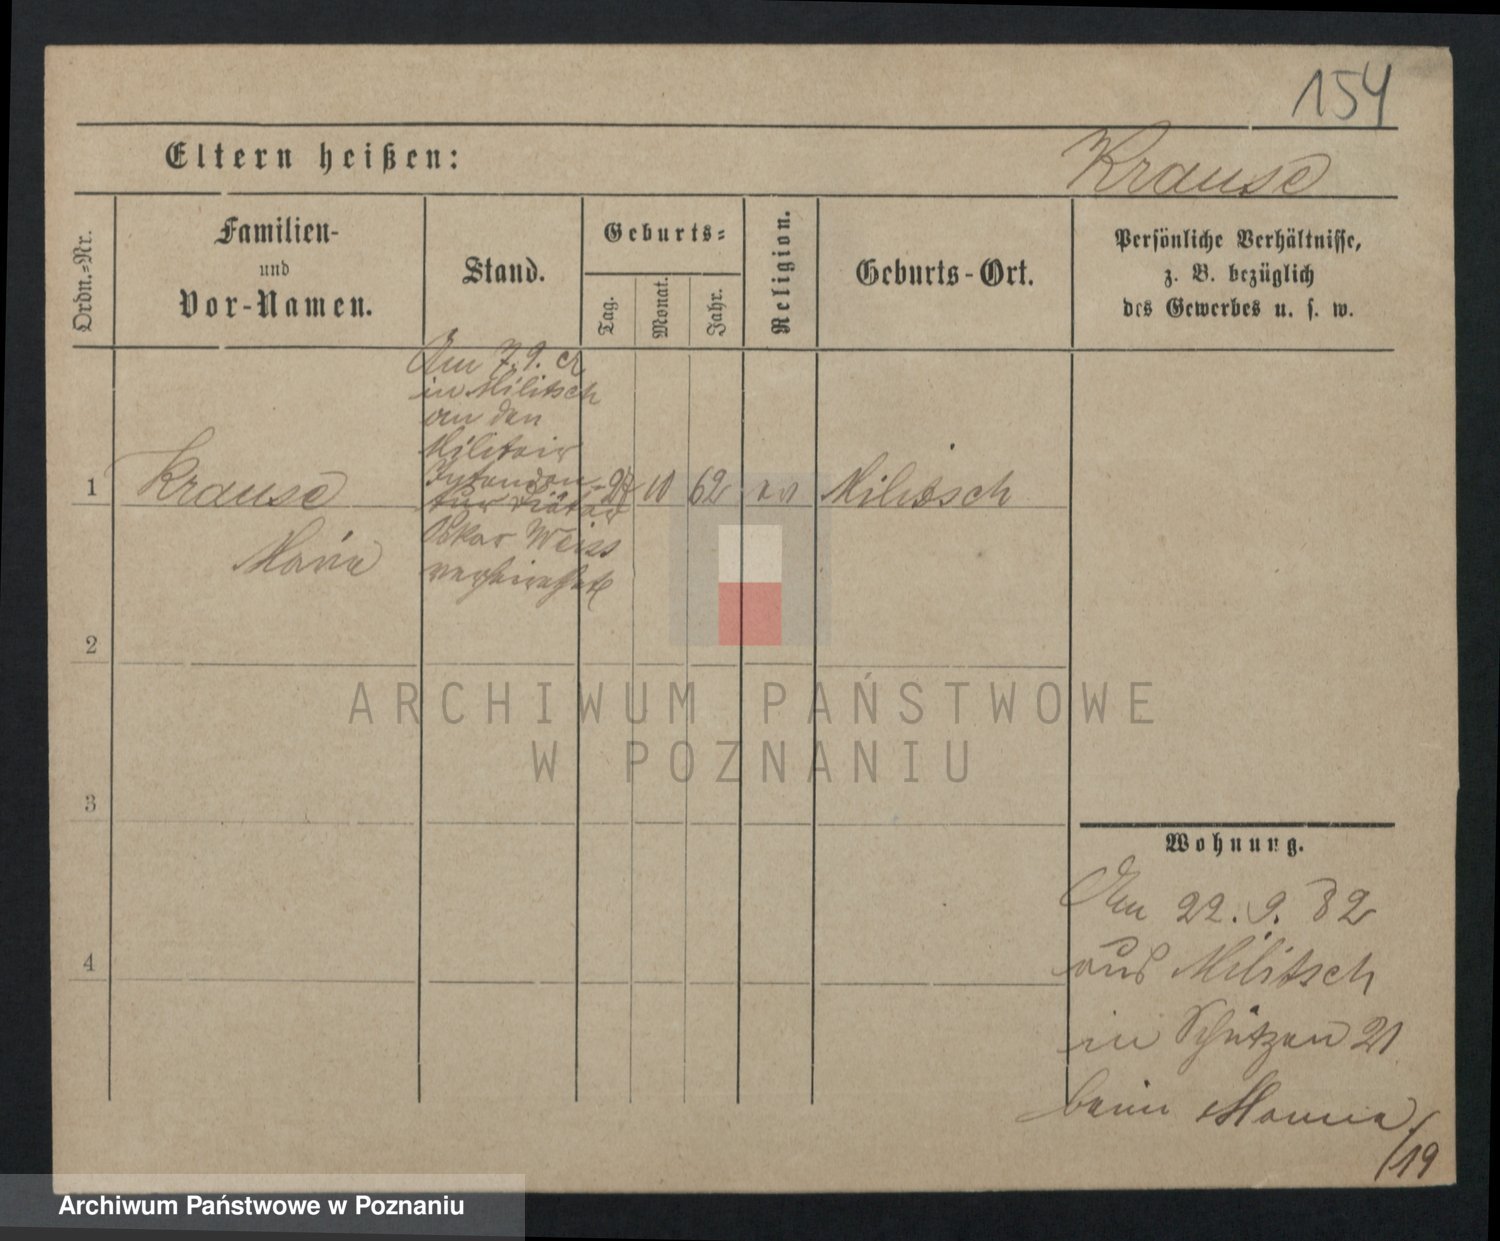 154
Eltern heißen:
Krause
Ordn.=Nr.
Familien-
und
Vor-Namen.
Stand.
Geburts=
Tag.
Monat.
Jahr.
Religion.
Geburts-Ort.
Persönliche Verhältnisse,
z. B. bezüglich
des Gewerbes u. s. w.
Am 7. 9. cr
in Militsch
an den
Militair
Intendan-
tur Diätar
Oskar Weiss
verheirathet
1
Krause
Maria
27
10
62
ev
Militsch
2
3
4
Wohnung.
Am 22. 9. 82
aus Militsch
in Schützen 21
beim Manne
/19
ARCHIWUM PAŃSTWOWE
W POZNANIU
Archiwum Państwowe w Poznaniu